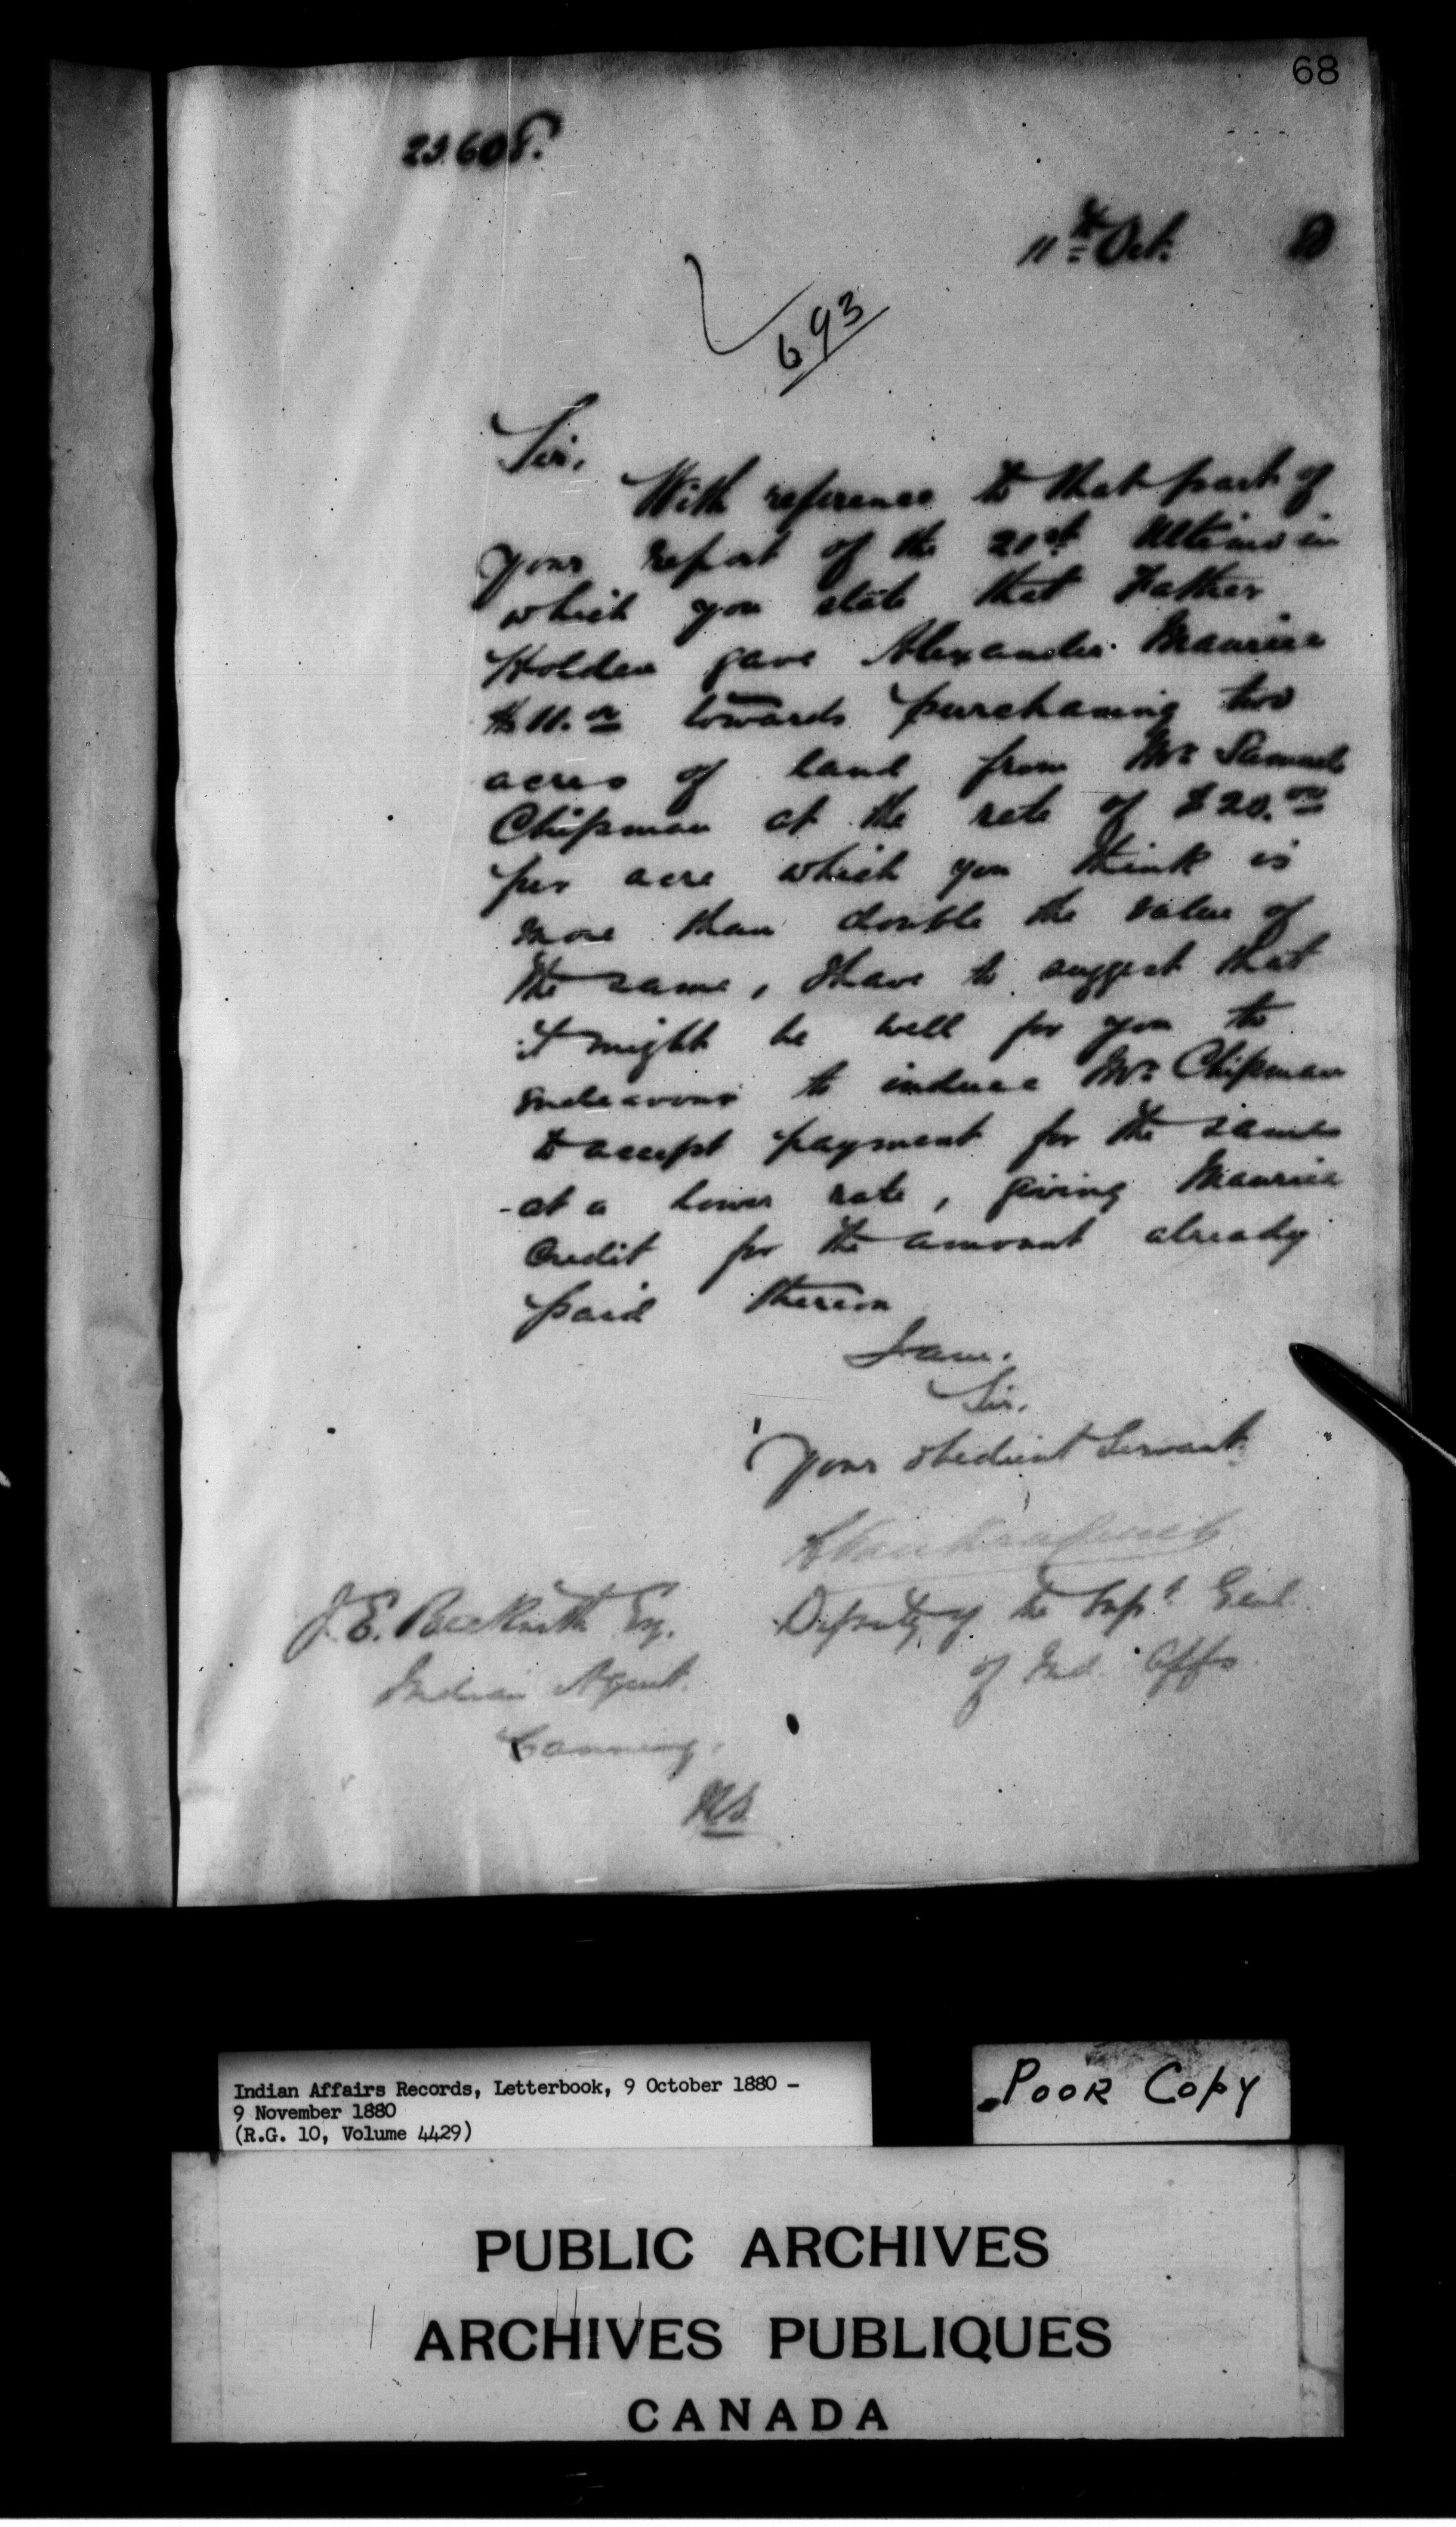 68
23.608.
11th Oct. 80
693
Sir,
With reference to that part of
your report of the 21st Ultimo in
which you state that Father
Holden gave Alexander Maurice
$11.00 towards purchasing two
acres of land from Mr Samuel
Chipman at the rate of $20.00
per acre which you think is
more than double the value of
the same, I have to suggest that
it might be well for you to
endeavour to induce Mr Chipman
to accept payment for the same
at a lower rate, giving Maurice
Credit for the amount already
paid thereon
I am.
Sir.
Your obedient Servant
L Vankoughnet
J. E. Beckwith Esq. Deputy of the Supt Genl
Indian Agent. of Ind. Affs
Canning.
N.S.
Indian Affairs Records, Letterbook, 9 October 1880 -
9 November 1880
(R.G. 10, Volume 4429)
Poor Copy
PUBLIC ARCHIVES
ARCHIVES PUBLIQUES
CANADA